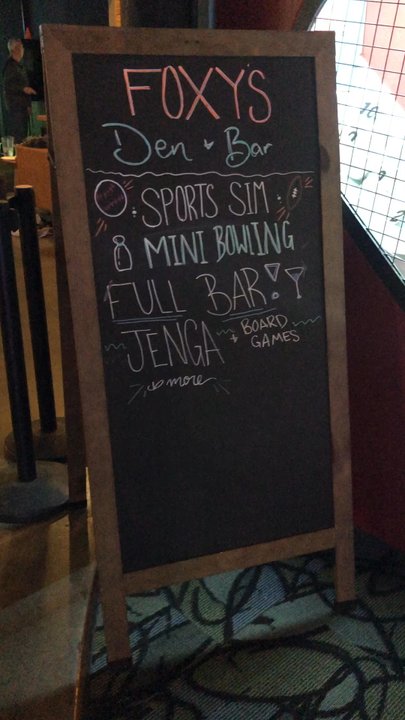 FOXY'S
Den & Bar
SPORTS SIM
MINI BOWLING
FULL BAR!
JENGA + BOARD GAMES
& more